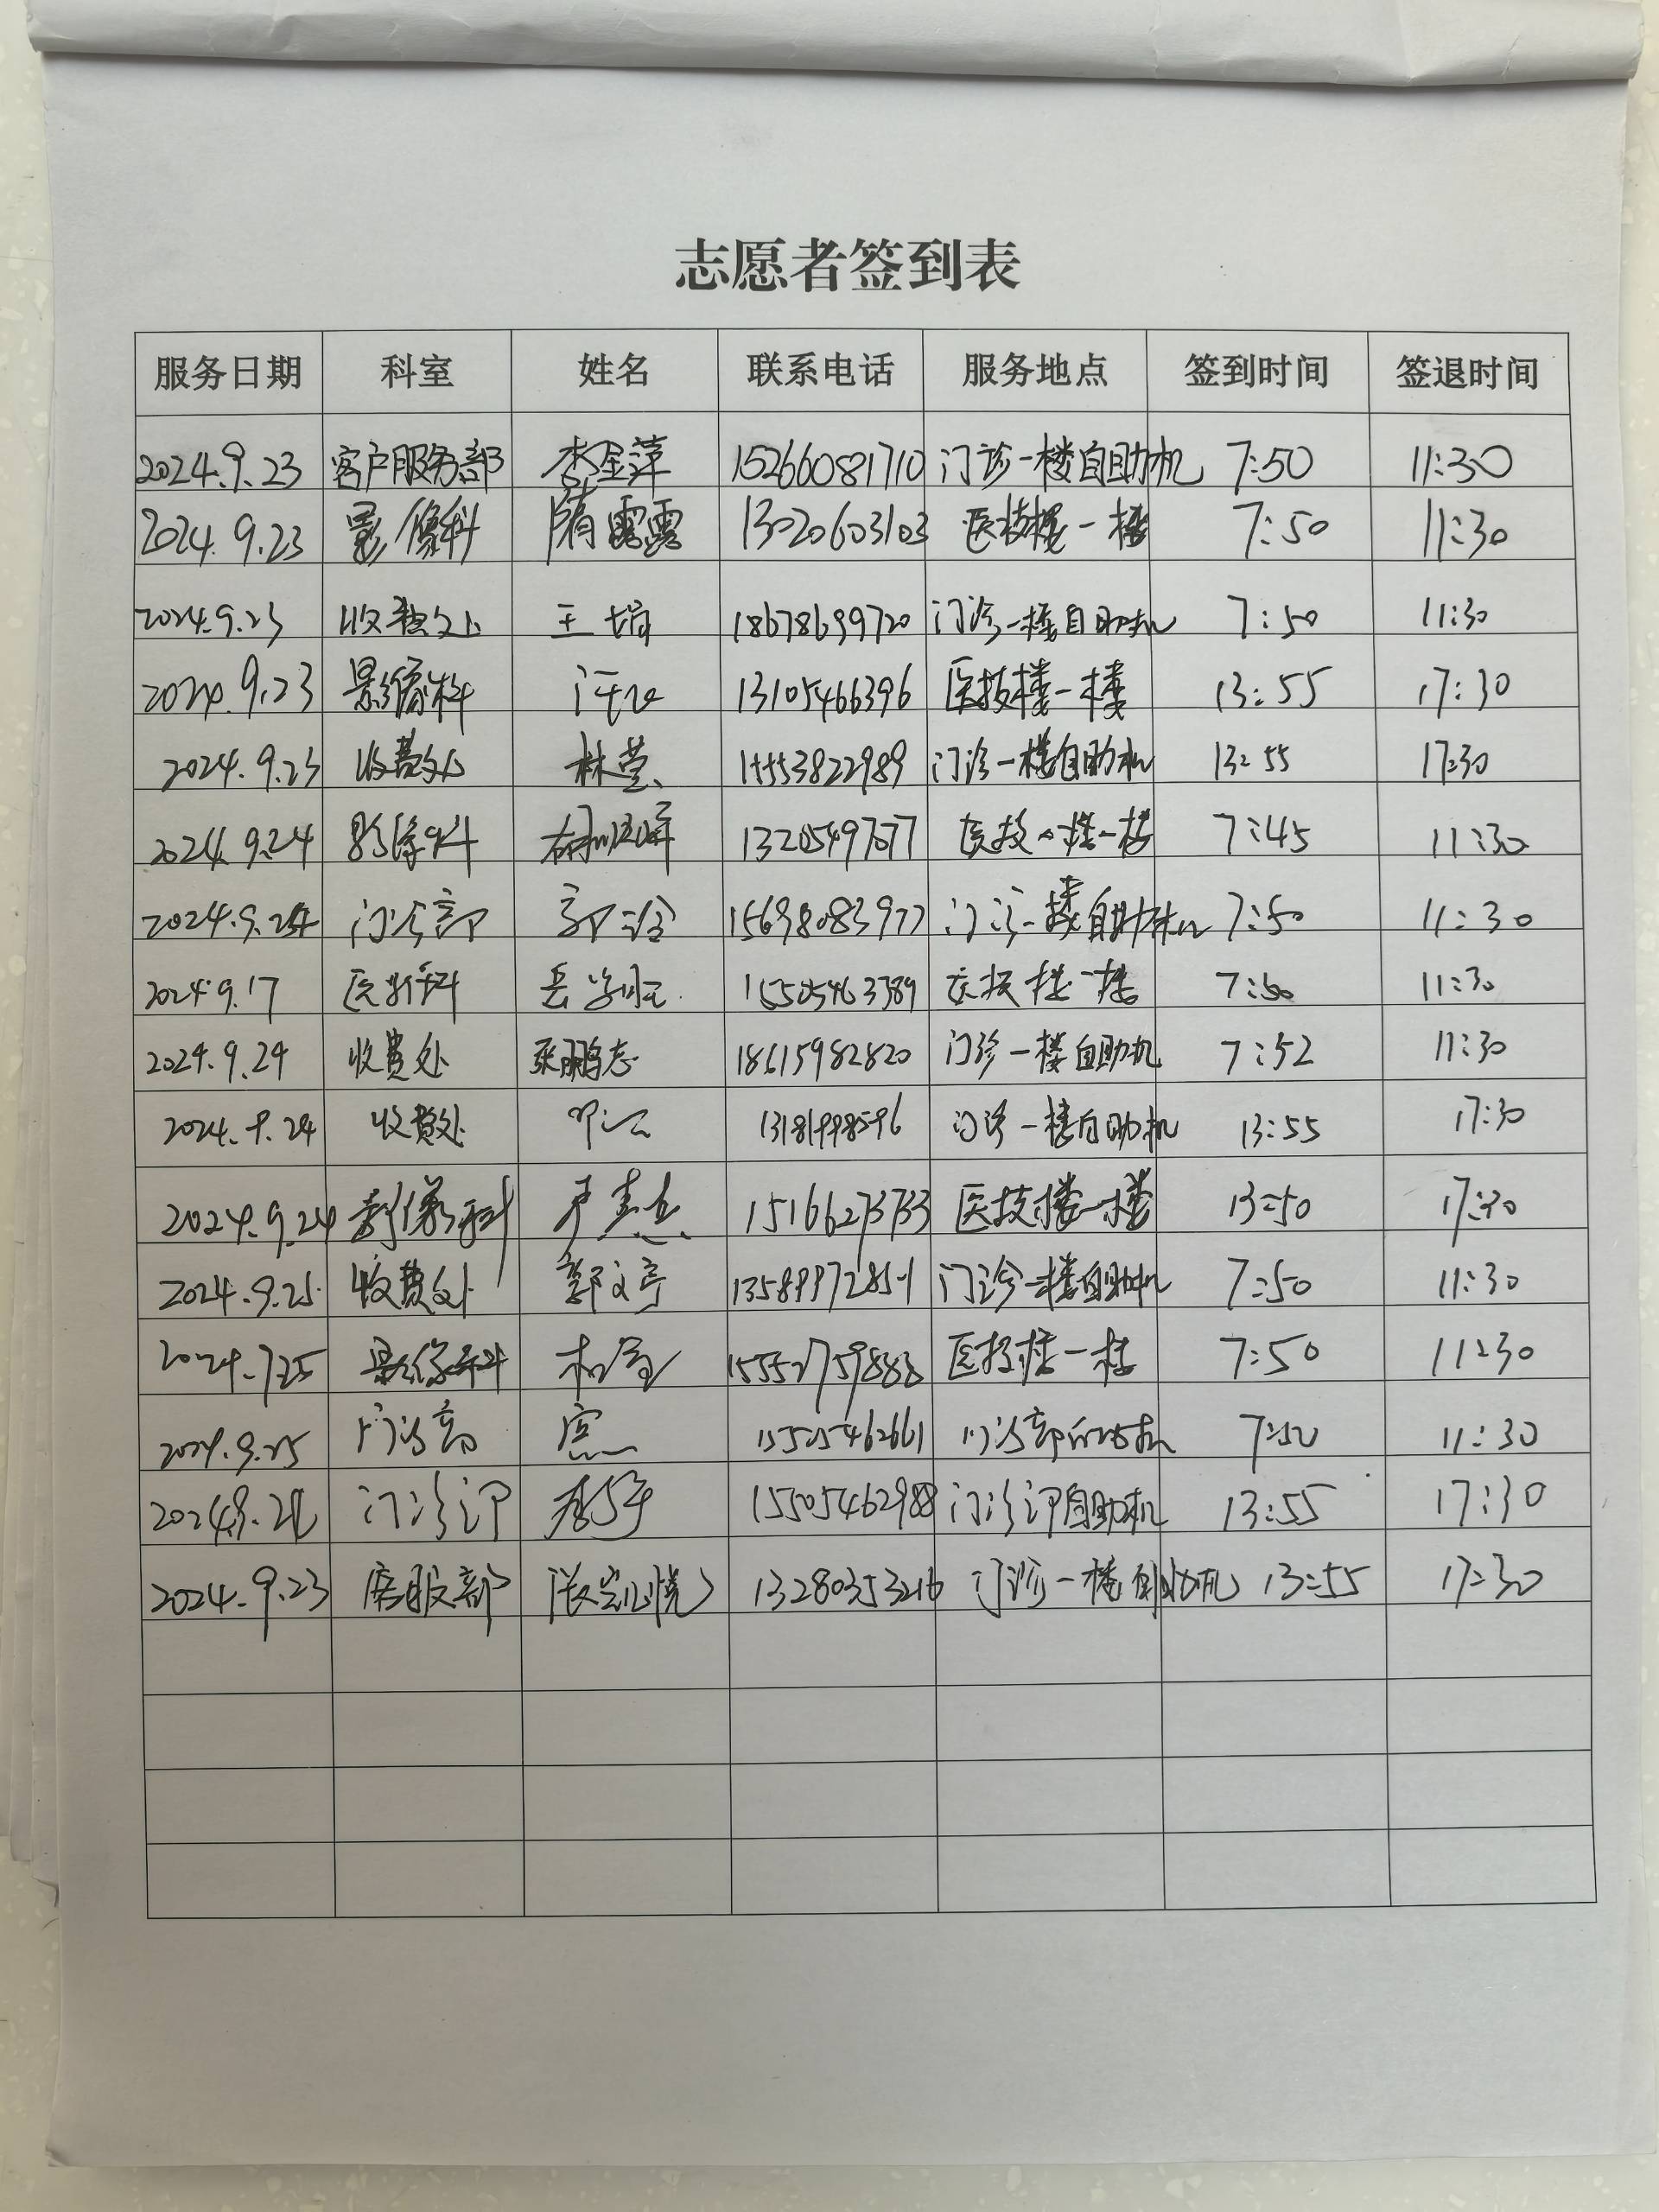 志愿者签到表
服务日期 科室 姓名 联系电话 服务地点 签到时间 签退时间
2024.9.23 客户服务部 李金萍 15266081710 门诊一楼自助机 7:50 11:30
2024.9.23 影像科 隋露露 13020603103 医技楼一楼 7:50 11:30
2024.9.23 收费处 王娟 18678699720 门诊一楼自助机 7:50 11:30
2024.9.23 影像科 13105466396 医技楼一楼 13:55 17:30
2024.9.23 收费处 林莹 15553822989 门诊一楼自助机 13:55 17:30
2024.9.24 影像科 医技楼一楼 7:45 11:30
2024.9.24 门诊部 15698083977 门诊一楼自助机 7:50 11:30
2024.9.17 15505463789 医技楼一楼 7:50 11:30
2024.9.24 收费处 张鹏志 18615982820 门诊一楼自助机 7:52 11:30
2024.9.24 收费处 门诊一楼自助机 13:55 17:30
2024.9.24 影像科 15166273733 医技楼一楼 13:50 17:30
2024.9.25 收费处 郭文亭 门诊一楼自助机 7:50 11:30
影像科 医技楼一楼 7:50 11:30
2024.9.25 门诊部 15505462661 7:50 11:30
门诊部 15505462988 门诊部自助机 13:55 17:30
2024.9.23 客服部 13280353216 门诊一楼自助机 13:55 17:30